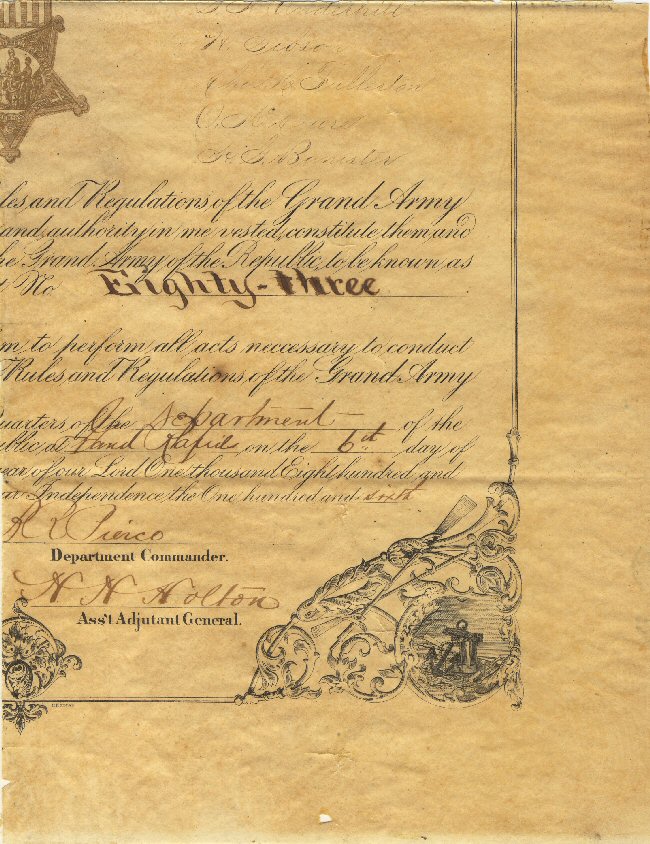 Underhill
Fullerton
Banister
ules and Regulations of the Grand Army
and authority in me vested, constitute them, and
he Grand Army of the Republic, to be known as
No Eighty-three
m to perform all acts neccessary to conduct
Rules and Regulations of the Grand Army
quarters of the Department of the
public at Grand Rapids on the 6th day of
year of our Lord One thousand Eight hundred and
ar Independence, the One hundred and sixth
Pierce
Department Commander.
Holton
Ass't Adjutant General.